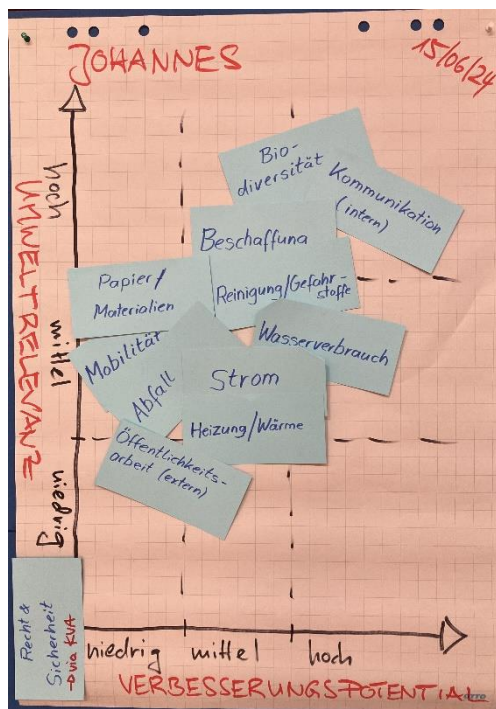 JOHANNES
15/06/24
hoch
UMWELTRELEVANZ
mittel
niedrig
Bio-
diversität
Kommunikation
(intern)
Beschaffung
Reinigung/Gefahr-
stoffe
Papier/
Materialien
Wasserverbrauch
Mobilität
Abfall
Strom
Heizung/Wärme
Öffentlichkeits-
arbeit (extern)
Recht &
Sicherheit
→ via KVA
niedrig
mittel
hoch
VERBESSERUNGSPOTENTIAL